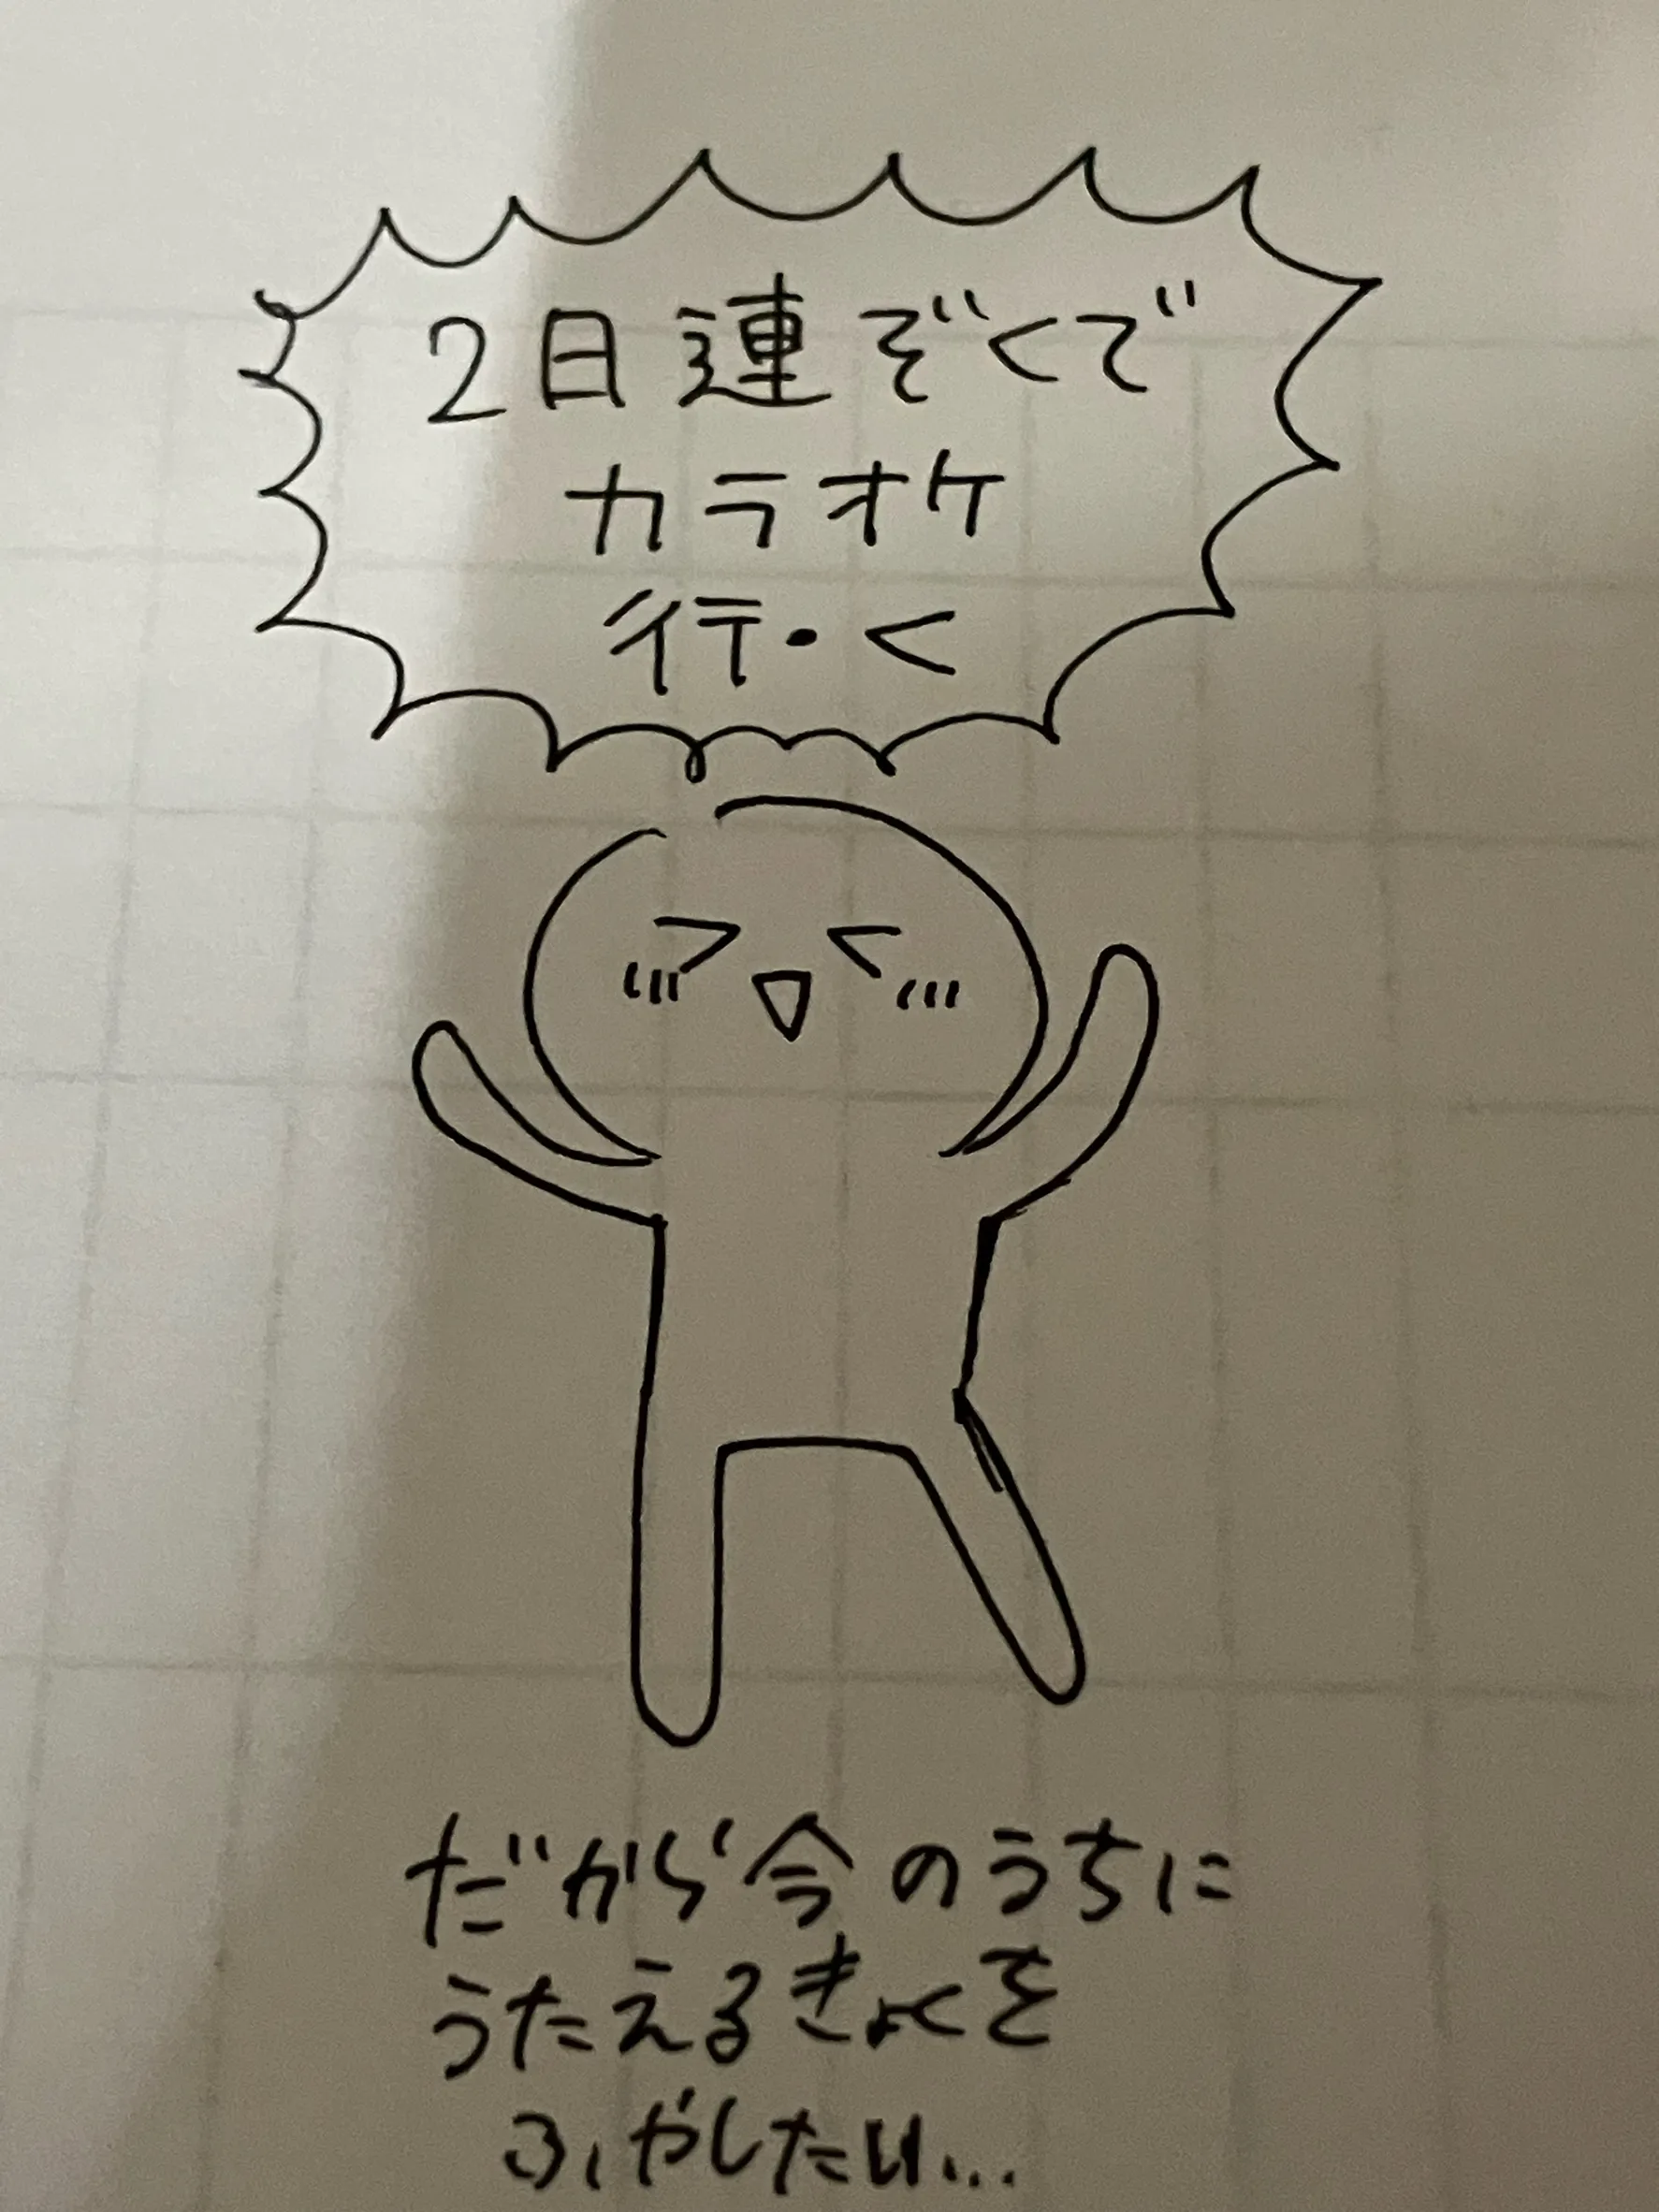 2日連ぞくで
カラオケ
行・く
だから今のうちに
うたえるきょくを
ふやしたい...